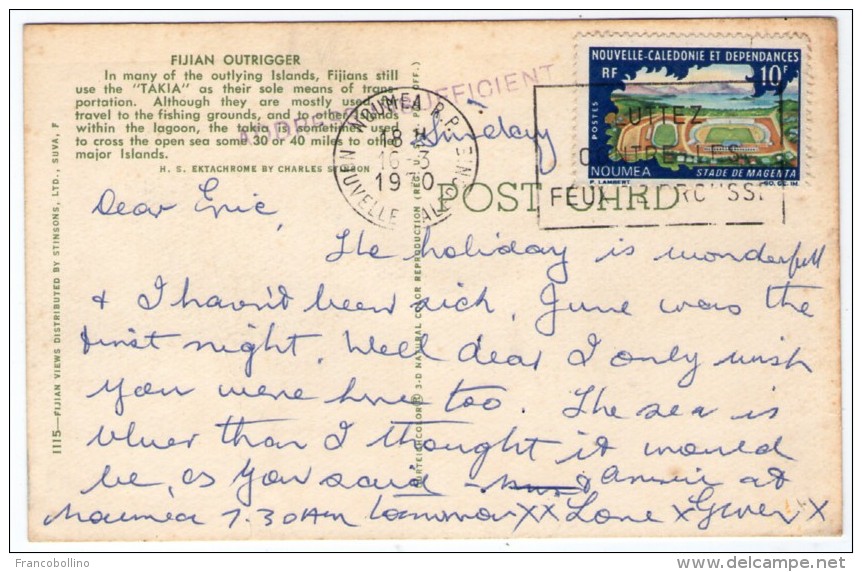 FIJIAN OUTRIGGER
In many of the outlying Islands, Fijians still
use the "TAKIA" as their sole means of trans
portation. Although they are mostly used
travel to the fishing grounds, and to other islands
within the lagoon, the takia is sometimes used
to cross the open sea some 30 or 40 miles to other
major Islands.
H. S. EKTACHROME BY CHARLES
ADDRESS INSUFFICIENT
NOUMEA R.P.
18 H
16-3
19 0
NOUVELLE CALEDONIE
NOUVELLE-CALEDONIE ET DEPENDANCES
RF
10F
POSTES
NOUMEA
STADE DE MAGENTA
P. LAMBERT
LUTTEZ
CONTRE LES
FEUX DE BROUSSE
POST CARD
1115—FIJIAN VIEWS DISTRIBUTED BY STINSONS, LTD., SUVA, F
3-D NATURAL COLOR REPRODUCTION (REG. U. S. PAT. OFF.)
Sunday
Dear Eric,
The holiday is wonderfull
& I havn't been sick, June was the
first night. Well dear I only wish
you were here too. The sea is
bluer than I thought it would
be, as you said arrive at
Noumea 7.30AM tommorow XX Love X X
Francobollino
delcampe.net